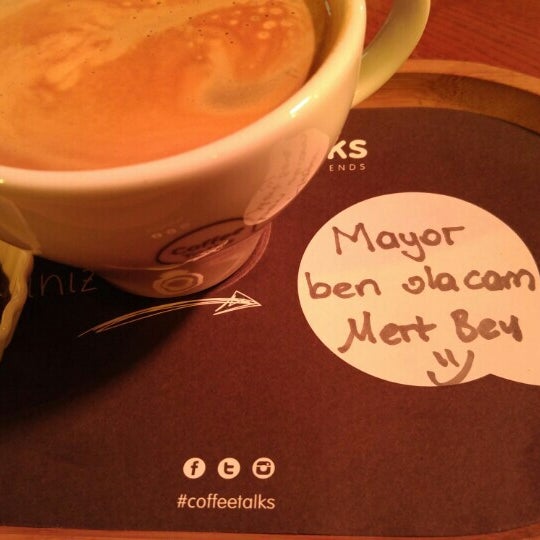 KS
ENDS
Mayor
ben olacam
Mert Bey
Coffee
#coffeetalks